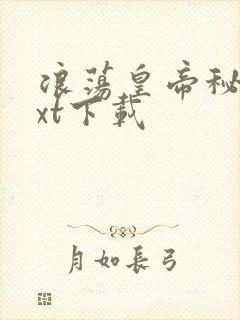 浪蕩皇帝秘
xt下載
月如長弓